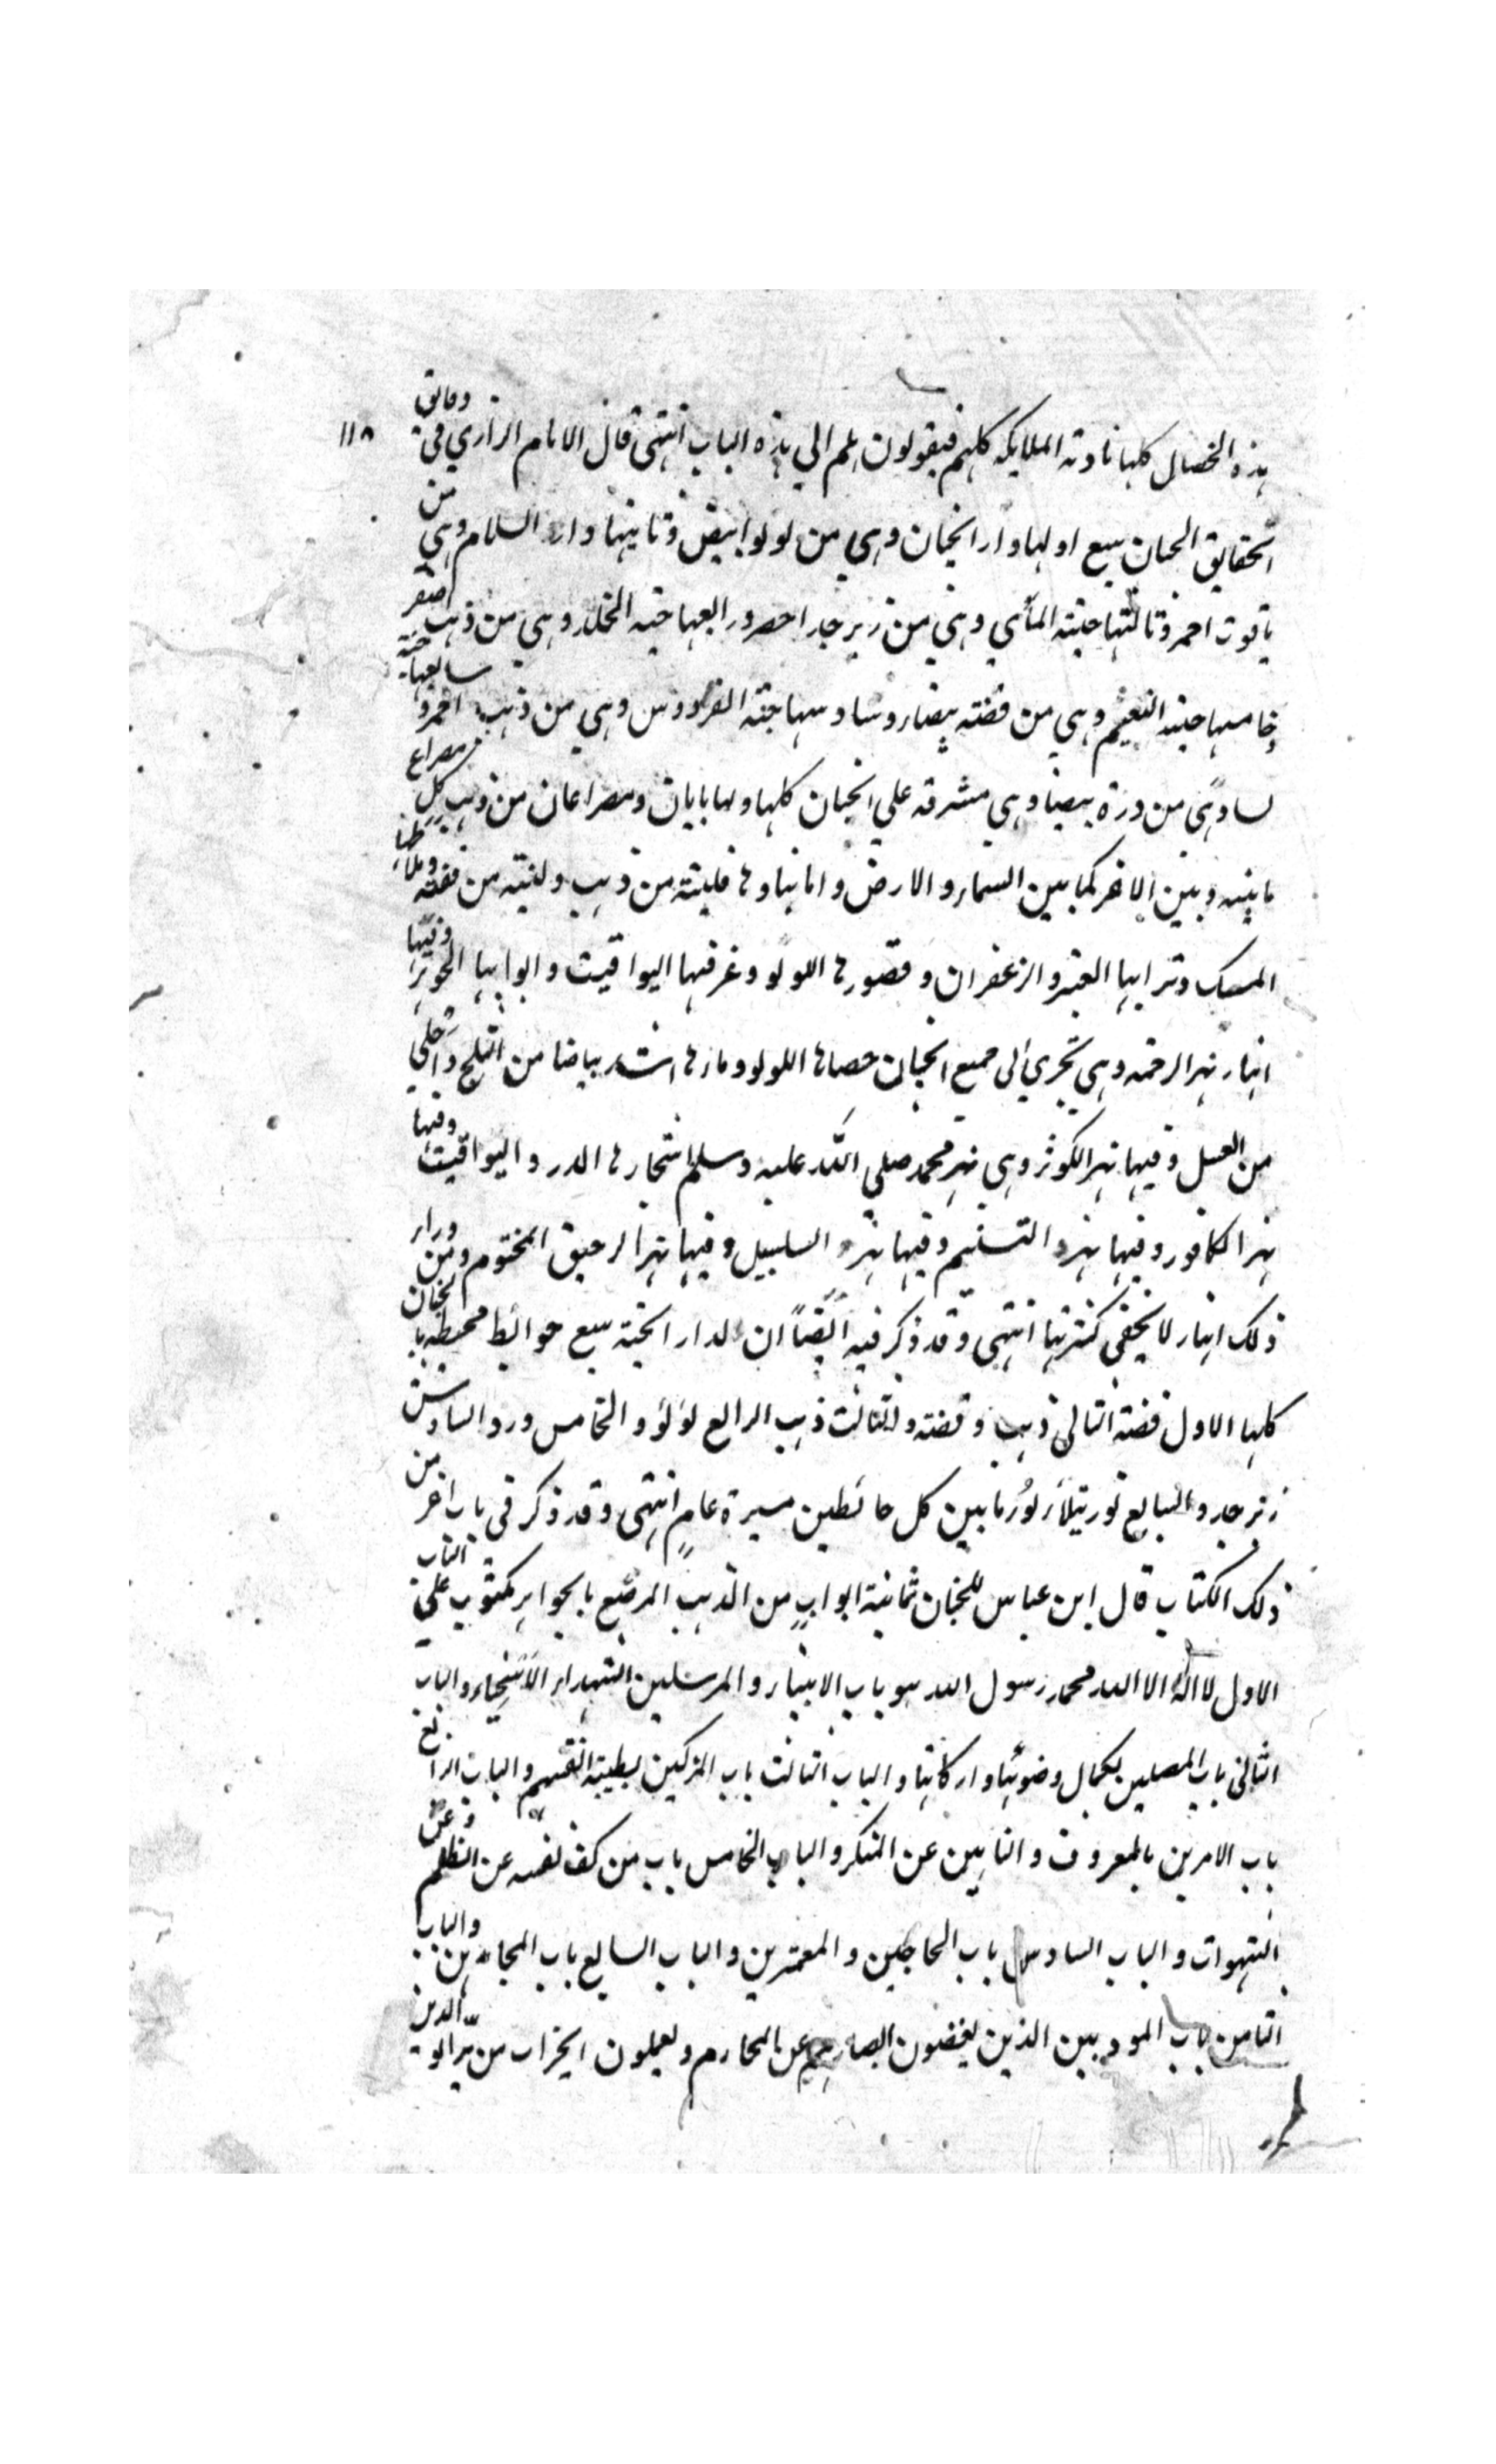 ١١٨
هذه الخصال كلها نادته الملايكه كلهم فيقولون هلم الي هذه الباب انتهى قال الامام الرازي في دقايق
الحقايق الجنان سبع اولها دار الجنان وهي من لولو ابيض وثانيها دار السلام وهي من
ياقوت احمر وثالثها جنته المأوي وهي من زبرجد اخضر ورابعها جنه الخلد وهي من ذهب اصفر
خامسها جنه النعيم وهي من فضته بيضاء وسادسها جنته الفردوس وهي من ذهب احمر وسابعها جنه
من درة بيضا وهي مشرفه علي الجنان كلها ولها بابان ومصراعان من ذهب كل مصراع
ما بينه وبين الاخر كما بين السماء والارض واما بناوها فلبنته من ذهب ولبنته من فضته وملاطها
المسك وترابها العنبر والزعفران وقصورها اللولو وغرفها اليواقيت وابوابها الجوهر وفيها
انهار نهر الرحمه وهي تجري الى جميع الجنان حصاها اللولو وماوها اشد بياضا من الثلج واحلي
من العسل وفيها نهر الكوثر وهي نهر محمد صلي الله عليه وسلم اشجارها الدر واليواقيت وفيها
نهر الكافور وفيها نهر التسنيم وفيها نهر السلسبيل وفيها نهر الرحيق المختوم ومن وراء
ذلك انهار لا يخفى كثرتها انتهى وقد ذكر فيه ايضاً ان لدار الجنة سبع حوائط محيطه بالجنان
كلها الاول فضة الثاني ذهب وفضته والثالث ذهب الرابع لؤلؤ والخامس در والسادس
زبرجد والسابع نور يتلألأ نورُ ما بين كل حائطين مسيرة عامٍ انتهى وقد ذكر في باب اخر من
ذلك الكتاب قال ابن عباس للجنان ثمانية ابوابٍ من الذهب المرصع بالجواهر مكتوب على الباب
الاول لا اله الا الله محمد رسول الله هو باب الانبياء والمرسلين الشهداء الاسخياء والباب
الثاني باب المصلين بكمال وضوئها واركانها والباب الثالث باب المزكين بطيبة انفسهم والباب الرابع
باب الامرين بالمعروف والناهين عن المنكر والباب الخامس باب من كف نفسه عن الظلم وعن
الشهوات والباب السادس باب الحاجين والمعتمرين والباب السابع باب المجاهدين والباب
الثامن باب الذين يغضون ابصارهم عن المحارم ويعملون الخيرات من بر الوالدين